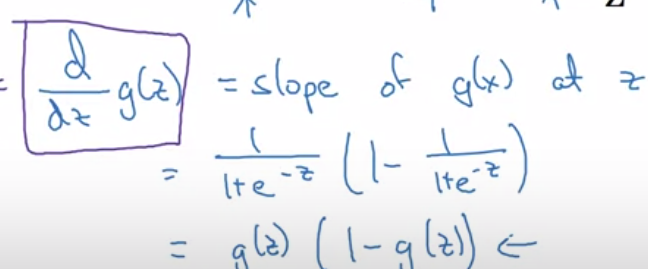 = d/dz g(z) = slope of g(x) at z
= 1/(1+e^-z) (1 - 1/(1+e^-z))
= g(z) (1 - g(z)) ←